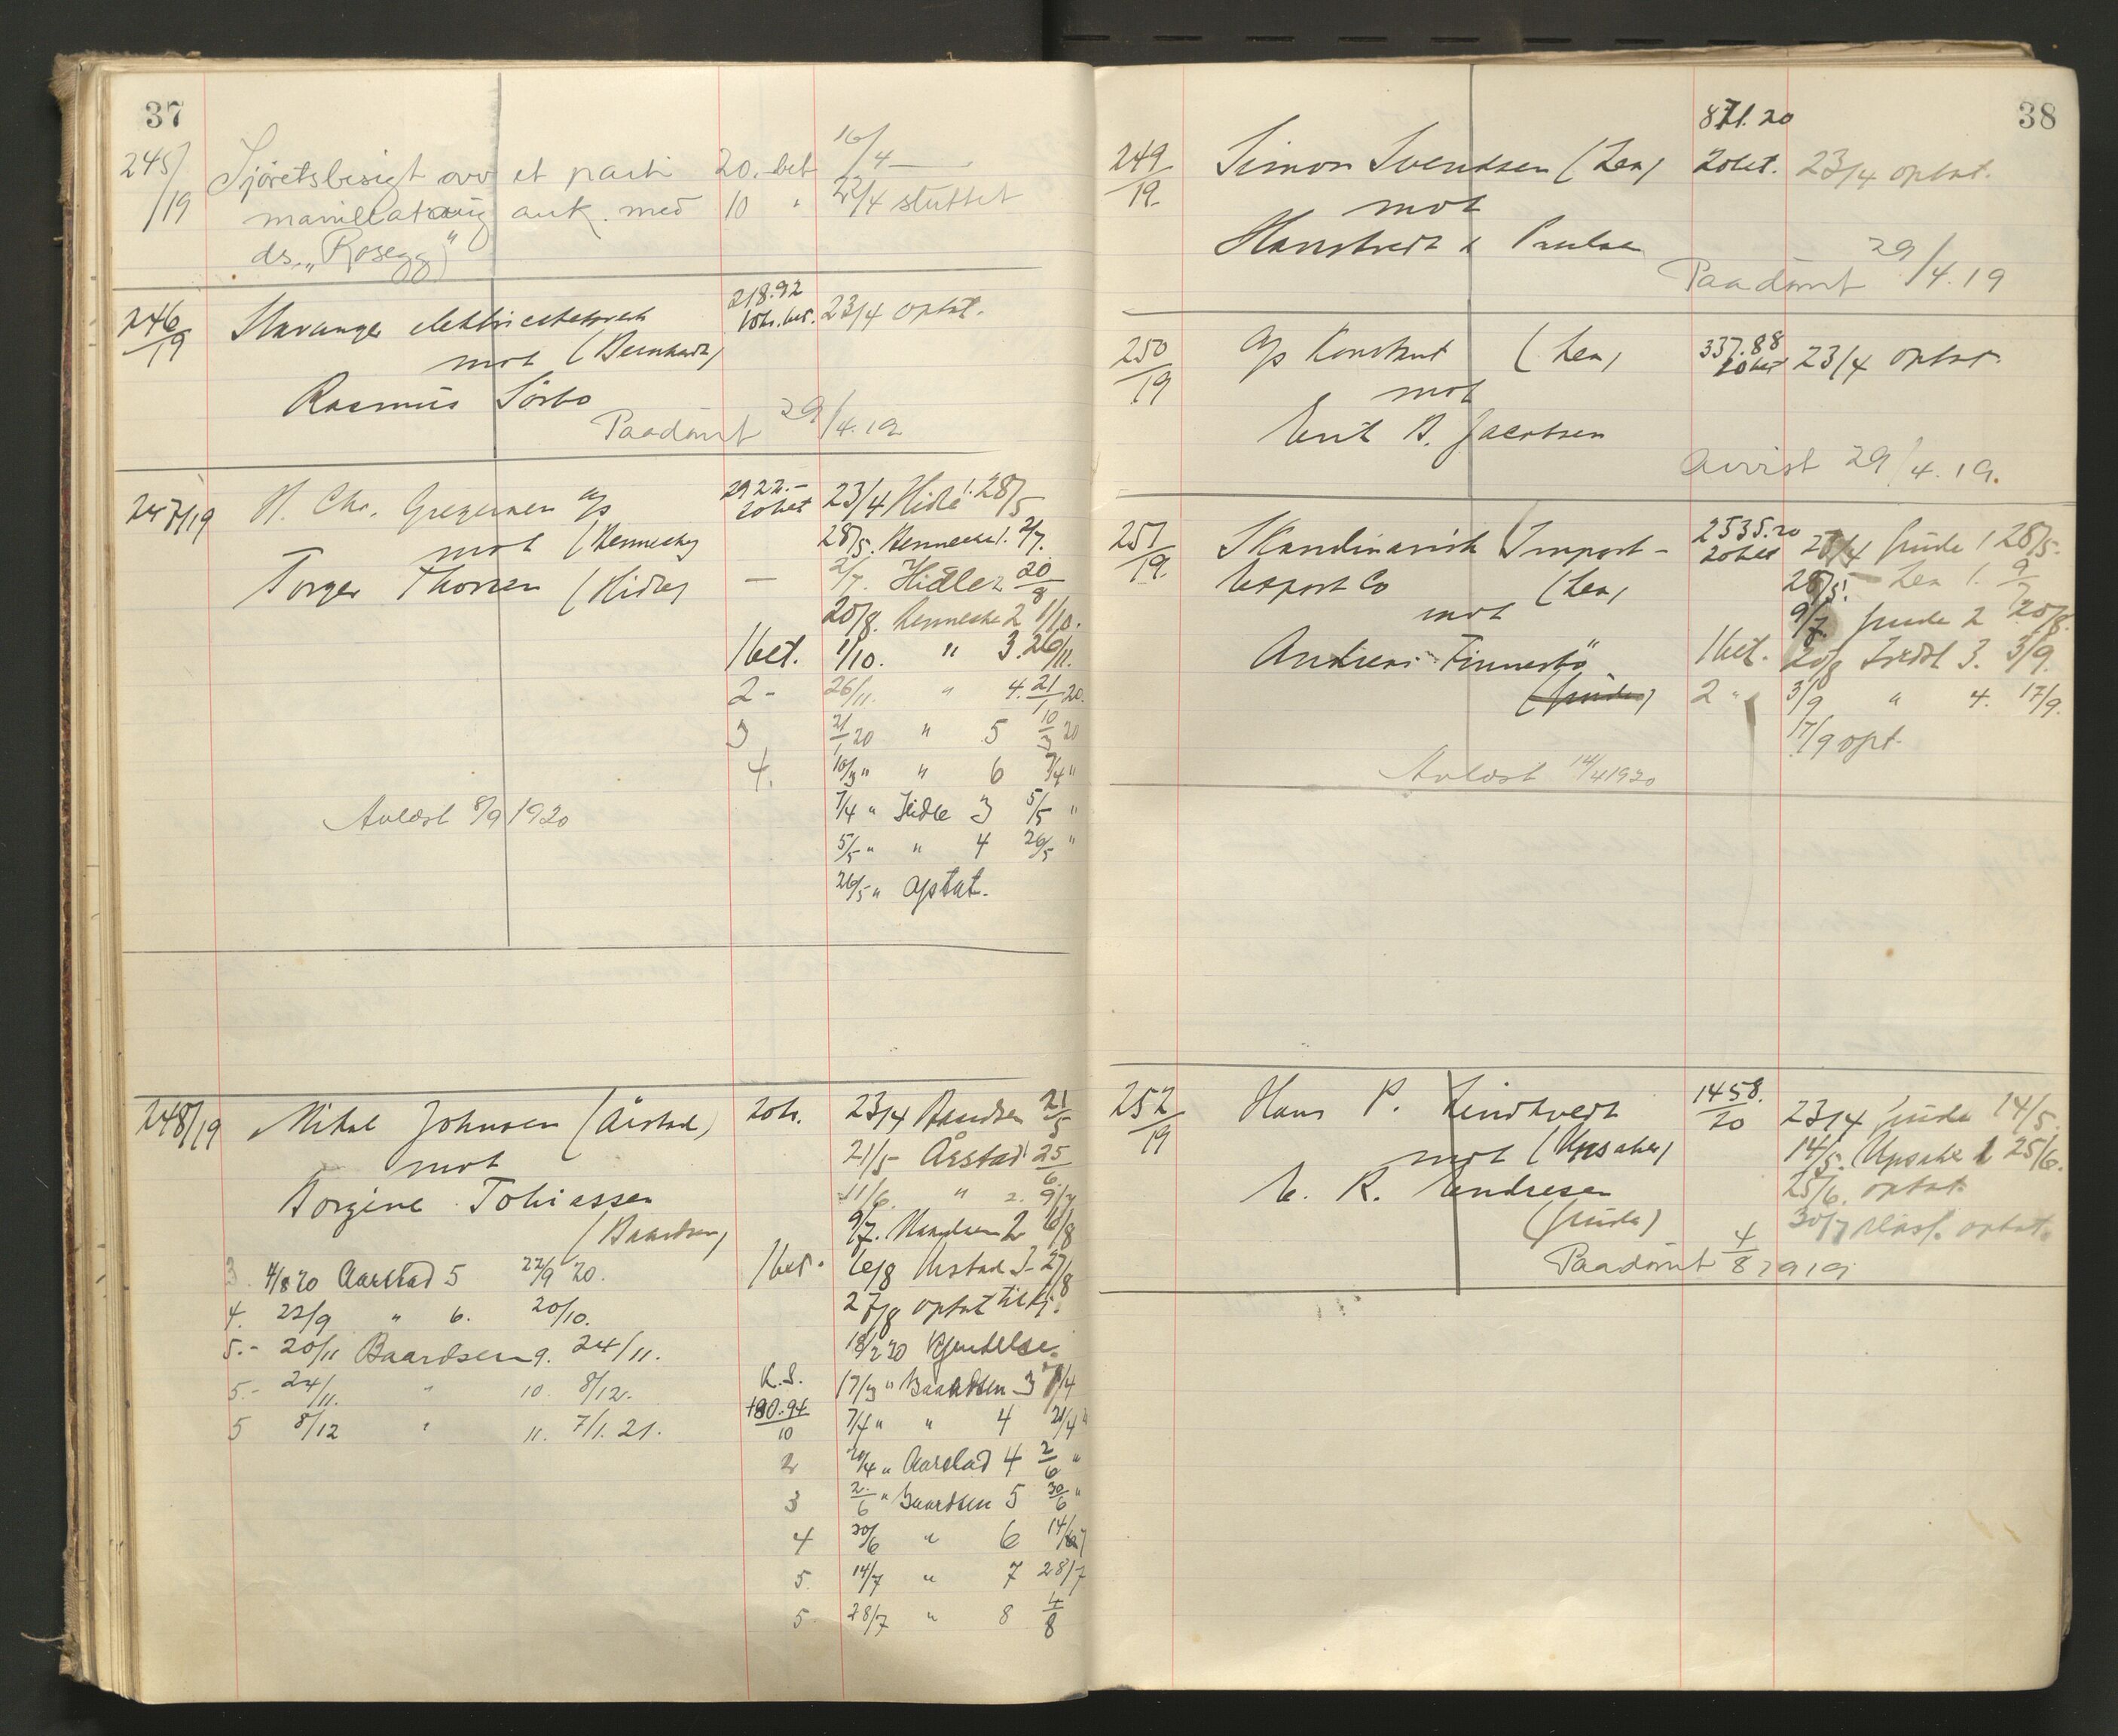 37
245/19 Sjøretsbesigt avv et parti 20.-bet 16/4
manillataug ank. med 10 " 22/4 sluttet
ds. „Rosegg"
246/19 Stavanger elektricitetsverk 218.92 10kr.bet. 23/4 optat.
mot (Bernhardt)
Rasmus Sörbo
Paadömt 29/4.19
247/19 H. Chr. Gregersen A/S 2922.- 20bet 23/4 Hidle 1. 28/5
mot (Kennecke) 28/5. Kennecke 1. 2/7.
Torger Thorsen (Hidle) — 2/7. Hidle 2 20/8
20/8. Kennecke 2 1/10.
1bet. 1/10. " 3. 26/11.
2- 26/11. " 4. 21/1 20.
3 21/1 20 " 5 10/3 20
4. 10/3 " " 6 7/4 "
Avlæst 8/9 1920 7/4 " Hidle 3 5/5 "
5/5 " " 4 26/5 "
26/5 " optat.
248/19 Mikal Johnsen (Årstad) 20kr. 23/4 Baardsen 21/5
mot 21/5 - Årstad 1 25/6.
Borgine Tobiassen 11/6. " 2. 9/7
(Baardsen) 9/7. Baardsen 2 6/8
3. 4/8 20 Aarstad 5 22/9 20. 1bet. 6/8 Årstad 3 - 27/8
4. 22/9 " 6. 20/10. 27/8 optat til kj.
5.- 20/11 Baardsen 9. 24/11. 18/2 20 Kjendelse.
5.- 24/11. " 10. 8/12. K.S. 17/3 " Baardsen 3 7/4
5 8/12 " 11. 7/1. 21. 180.94/10 7/4 " " 4 21/4 "
2 21/4 " Aarstad 4 2/6 "
3 2/6 " Baardsen 5 30/6 "
4 30/6 " 6 14/7
5. 14/7 " 7 28/7
5. 28/7 " 8 4/8
38
871.20
249/19. Simon Svendsen (Lea) 20bet. 23/4 optat.
mot
Hanstvedt & Paulsen
Paadömt 29/4.19
250/19 A/S Konstrut (Lea) 337.88 20bet 23/4 optat.
mot
Erit A. Jacobsen
Avvist 29/4.19.
251/19. Skandinavisk Import- 2535.20 20bet 23/4 Grude 1 28/5.
Export Co (Lea) 28/5. Lea 1. 9/7
mot 9/7. Grude 2 20/8.
Andreas Finnestø 1bet. 20/8 3. 3/9.
(Grude) 2 " 3/9 " 4. 17/9.
17/9 opt.
Avlæst 14/4 1920
252/19 Hans P. Lindtvedt 1458./20 23/4 Grude 14/5.
mot (Upsaker) 14/5. Upsaker 1 25/6.
E. R. Endresen 25/6. optat.
(Grude) 30/7 optat.
Paadömt 4/8 1919